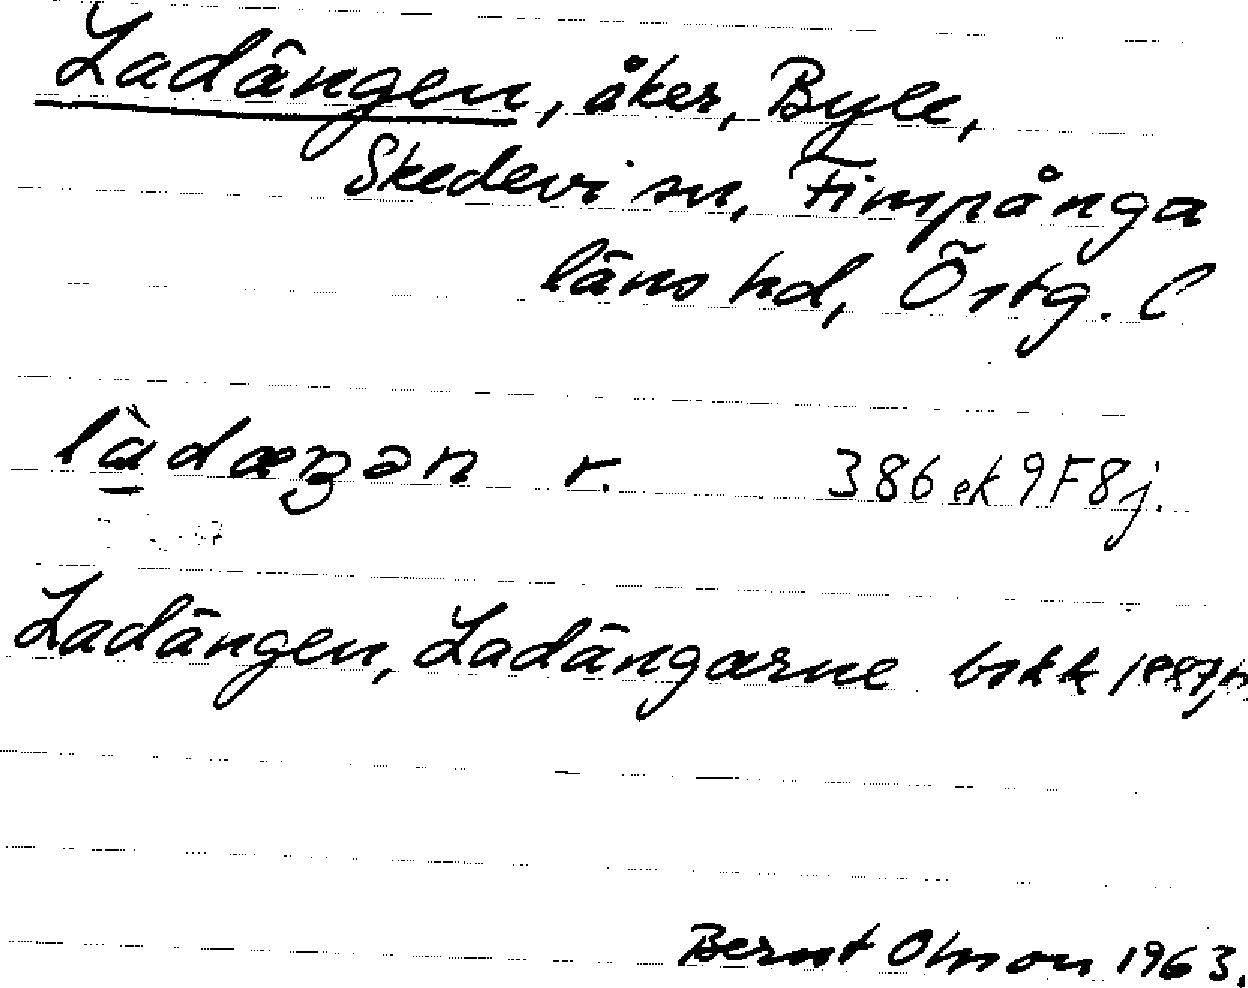 Ladängen, åker, Byle,
Skedevi sn, Finspånga
läns hd, Östg. l
làdæŋən r. 386 ek 9F8j.
Ladängen, Ladängarne bskk 1887,
Bernt Olsson 1963.